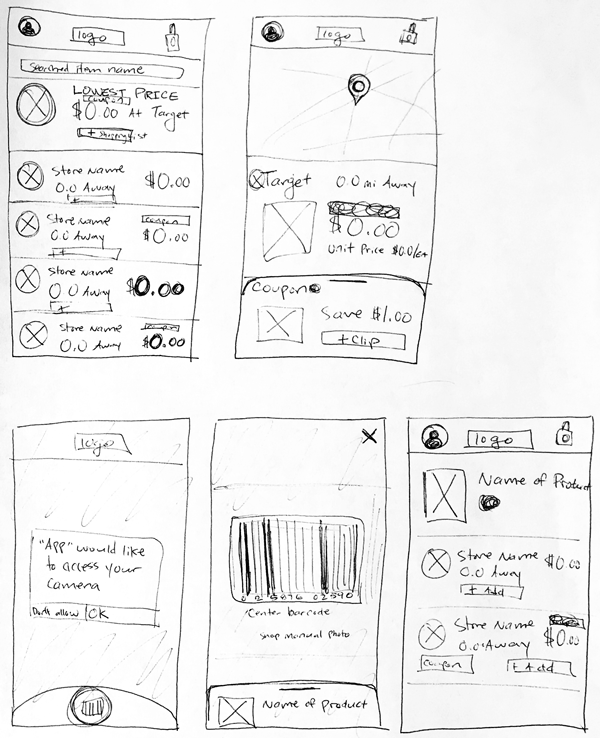 logo
Searched item name
LOWEST PRICE
coupon
$0.00 At Target
+ shopping list
Store Name
0.0 Away
$0.00
+
Store Name
0.0 Away
coupon
$0.00
+
Store Name
0.0 Away
$0.00
+
Store Name
0.0 Away
$0.00
logo
Target 0.0 mi Away
$0.00
Unit Price $0.0/ea
Coupon
Save $1.00
+Clip
logo
"App" would like
to access your
camera
Don't allow OK
X
0 25876 02590
Center barcode
Snap manual photo
Name of Product
logo
Name of Product
Store Name
0.0 Away
$0.00
+ Add
Store Name
0.0 Away
$0.00
coupon
+ Add